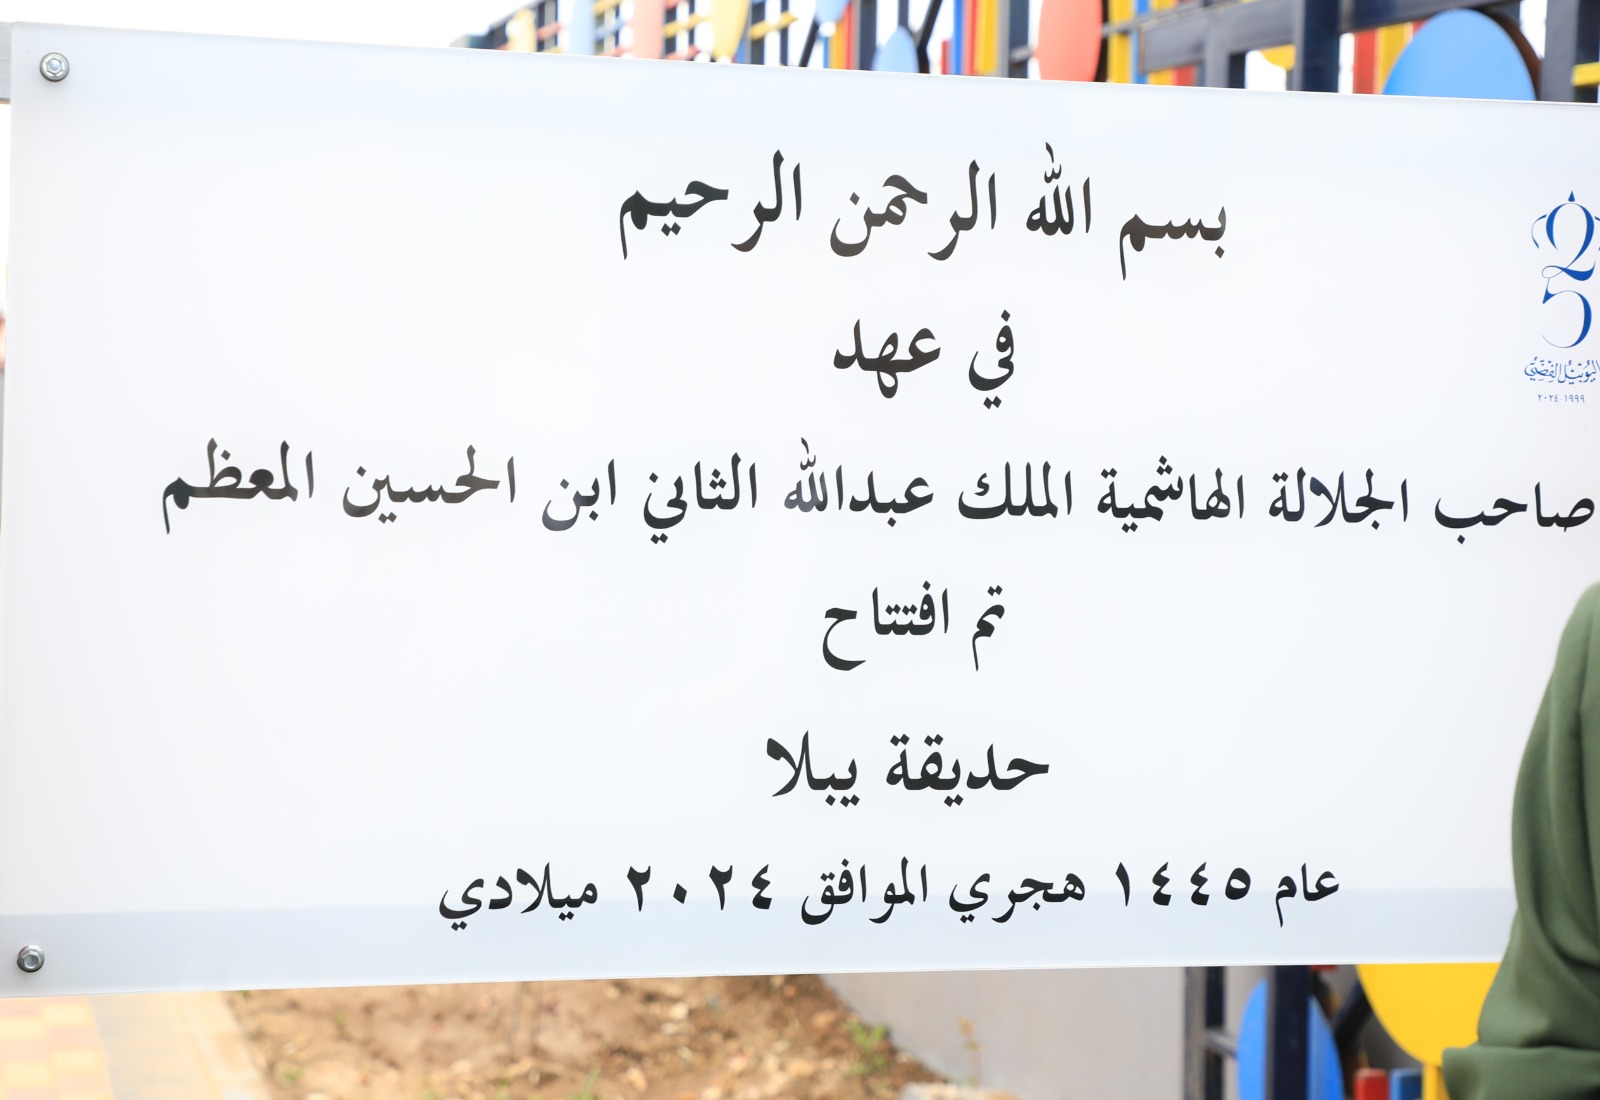 بسم الله الرحمن الرحيم
في عهد
صاحب الجلالة الهاشمية الملك عبدالله الثاني ابن الحسين المعظم
تم افتتاح
حديقة يبلا
عام ١٤٤٥ هجري الموافق ٢٠٢٤ ميلادي
25
اليوبيل الفضي
١٩٩٩-٢٠٢٤